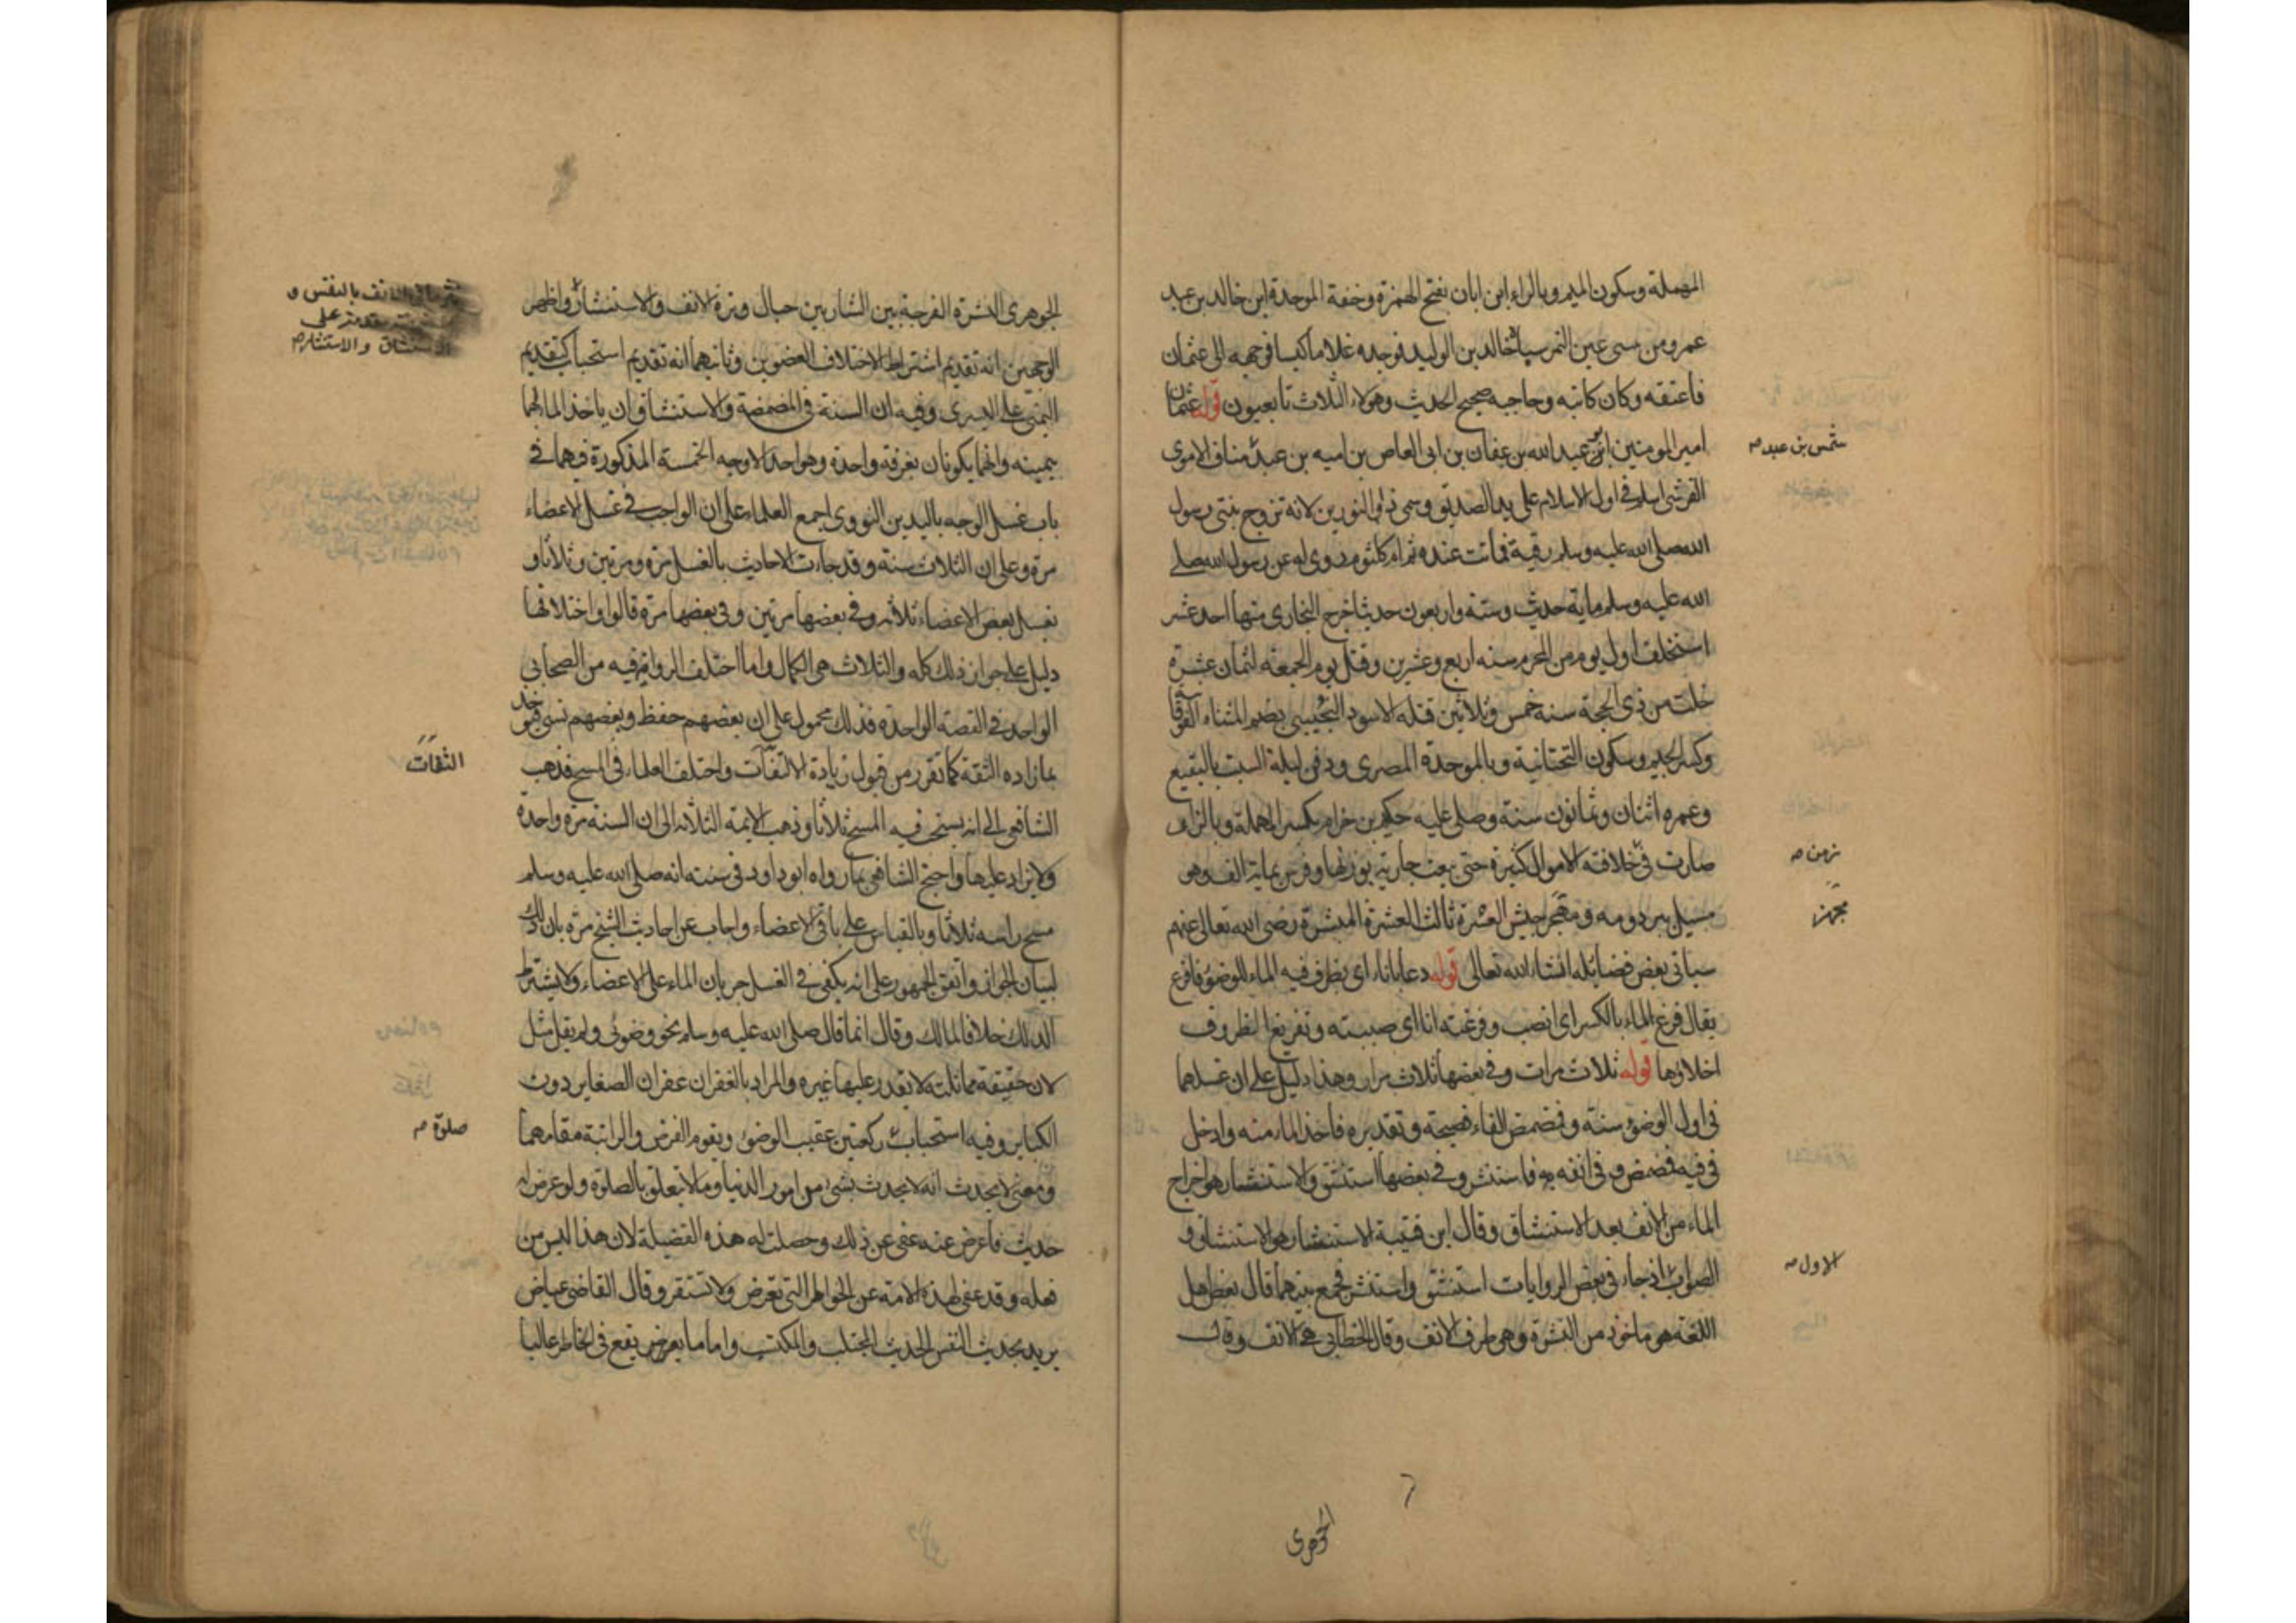 المهملة وسكون الميم وبالراء ابن ابان بفتح الهمزة وخفة الموحدة ابن خالد بن عبد
عمرو من سبى عين التمر سباه خالد بن الوليد فوجده غلاما كيسا فوجهه الى عثمان
فاعتقه وكان كاتبه وحاجبه صحيح الحديث وهؤلاء الثلاث تابعيون قوله عثمان
امير المومنين ابو عبد الله بن عفان بن ابى العاص بن اميه بن عبد مناف الاموى
شمس بن عبد صح
القرشى اسلم فى اول الاسلام على يد الصديق وسمى ذا النورين لانه تزوج بنتى رسول
الله صلى الله عليه وسلم رقية فماتت عنده ثم ام كلثوم روى له عن رسول الله صلى
الله عليه وسلم ماية حديث وستة واربعون حديثا خرج البخارى منها احد عشر
استخلف اول يوم من المحرم سنه اربع وعشرين وقتل يوم الجمعة لثمان عشرة
خلت من ذى الحجة سنه خمس وثلاثين قتله الاسود التجيبى بضم المثناه الفوقا
وكسر الجيم وسكون التحتانية وبالموحدة المصرى ودفن ليلة السبت بالبقيع
وعمره اثنان وثمانون سنة وصلى عليه حكيم بن حزام بكسر المهملة وبالزاى
صارت فى خلافته الاموال كثيرة حتى بيعت جارية بوزنها وفرس بماية الف وهو
زمن صح
مسبل بير دومه ومجهز جيش العسرة ثالث العشرة المبشرة رضى الله تعالى عنهم
مجهز
سياتى بعض فضائله انشاء الله تعالى قوله دعا باناء اى بظرف فيه الماء للوضوء فافرغ
يقال فرغ الماء بالكسر اى انصب وفرغته انا اى صببته وتفريغ الظروف
اخلاؤها قوله ثلاث مرات وفى بعضها ثلاث مرار وهذا دليل على ان غسلهما
فى اول الوضوء سنة وفمضمض الفاء فصيحة وتقديره فاخذ الماء منه وادخل
فى فيه فمضمض وفى انفه فاستنثر وفى بعضها استنشق والاستنثار هو اخراج
الماء من الانف بعد الاستنشاق وقال ابن قتيبة الاستنثار هو الاستنشاق و
الصواب اذ جاء فى بعض الروايات استنشق واستنثر فجمع بينهما قال بعض اهل
الاول صح
اللغة هو ماخوذ من النثرة وهى طرف الانف وقال الخطابى هى الانف وقال
الجوهرى
الجوهرى النثرة الفرجة بين الشاربين حيال وترة الانف والاستنثار واظهر
الوجهين انه تقديم اشتراط لاختلاف العضوين وثانيهما انه تقديم استحباب كتقديم
الاستنشاق والاستنثار صح
اليمنى على اليسرى وفيه ان السنة فى المضمضة والاستنشاق ان ياخذ الماء لهما
بيمينه وانما يكونان بغرفة واحدة وهو احد الاوجه الخمسة المذكورة فيهما فى
باب غسل الوجه باليدين النووى اجمع العلماء على ان الواجب فى غسل الاعضاء
مرة وعلى ان الثلاث سنة وقد جاءت الاحاديث بالغسل مرة ومرتين وثلاثا و
بغسل بعض الاعضاء ثلاثه وفى بعضها مرتين وفى بعضها مرة قالوا واختلافها
دليل على جواز ذلك كله والثلاث هى الكمال واما اختلف الرواة فيه من الصحابى
الواحد فى القصة الواحدة فذلك محمول على ان بعضهم حفظ وبعضهم نسى فيؤخذ
بما زاده الثقة كما تقرر من قبول زيادة الثقات واختلف العلماء فى المسح فذهب
الثقات
الشافعى الى انه يستحب فيه المسح ثلاثا وذهب الايمة الثلاثه الى ان السنة مرة واحدة
ولا يزاد عليها واحتج الشافعى بما رواه ابو داود فى سننه انه صلى الله عليه وسلم
مسح راسه ثلاثا وبالقياس على باقى الاعضاء واجاب عن احاديث المسح مره بان ذلك
لبيان الجواز واتفق الجمهور على انه يكفى فى الغسل جريان الماء على الاعضاء ولا يشترط
الدلك خلافا لمالك وقال انما قال صلى الله عليه وسلم نحو وضوئى ولم يقل مثل
لان حقيقة مماثلته لا يقدر عليها غيره والمراد بالغفران غفران الصغاير دون
الكباير وفيه استحباب ركعتين عقيب الوضوء ويقوم الفرض والراتبة مقامهما
صلوة صح
ومعنى لا يحدث انه لا يحدث بشىء من امور الدنيا وما لا يتعلق بالصلوة ولو عرض له
حديث فاعرض عنه عفى عن ذلك وحصلت له هذه الفضيلة لان هذا ليس من
فعله وقد عفى لهذه الامة عن الخواطر التى تعرض ولا تستقر وقال القاضى عياض
يريد بحديث النفس الحديث المجتلب والمكتسب واما ما يعرض يقع فى الخاطر غالبا